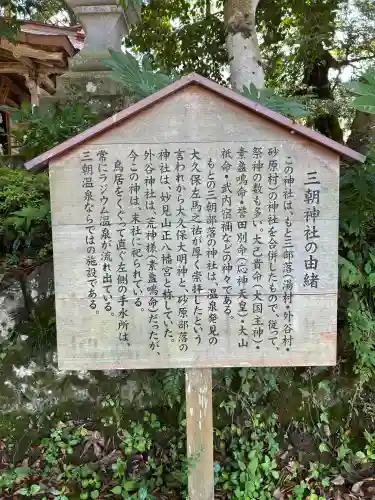 三朝神社の由緒
この神社は、もと三部落（湯村・外谷村・
砂原村）の神社を合併したもので、従って、
祭神の数も多い。大己貴命（大国主神）・
素盞鳴命・誉田別命（応神天皇）・大山
祇命・武内宿禰などの神々である。
もとの三朝部落の神社は、温泉発見の
大久保左馬之祐が厚く崇拝したという
言われから大久保大明神と、砂原部落の
神社は、妙見山正八幡宮と称していた。
外谷神社は、荒神様（素盞鳴命）だったが、
今この神は、末社に祀られている。
鳥居をくぐって直ぐ左側の手水所は、
常にラジウム温泉が流れ出ている。
三朝温泉ならではの施設である。